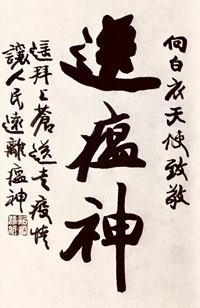 向白衣天使致敬
送瘟神
遥拜上蒼送走疫情
讓人民遠離瘟神